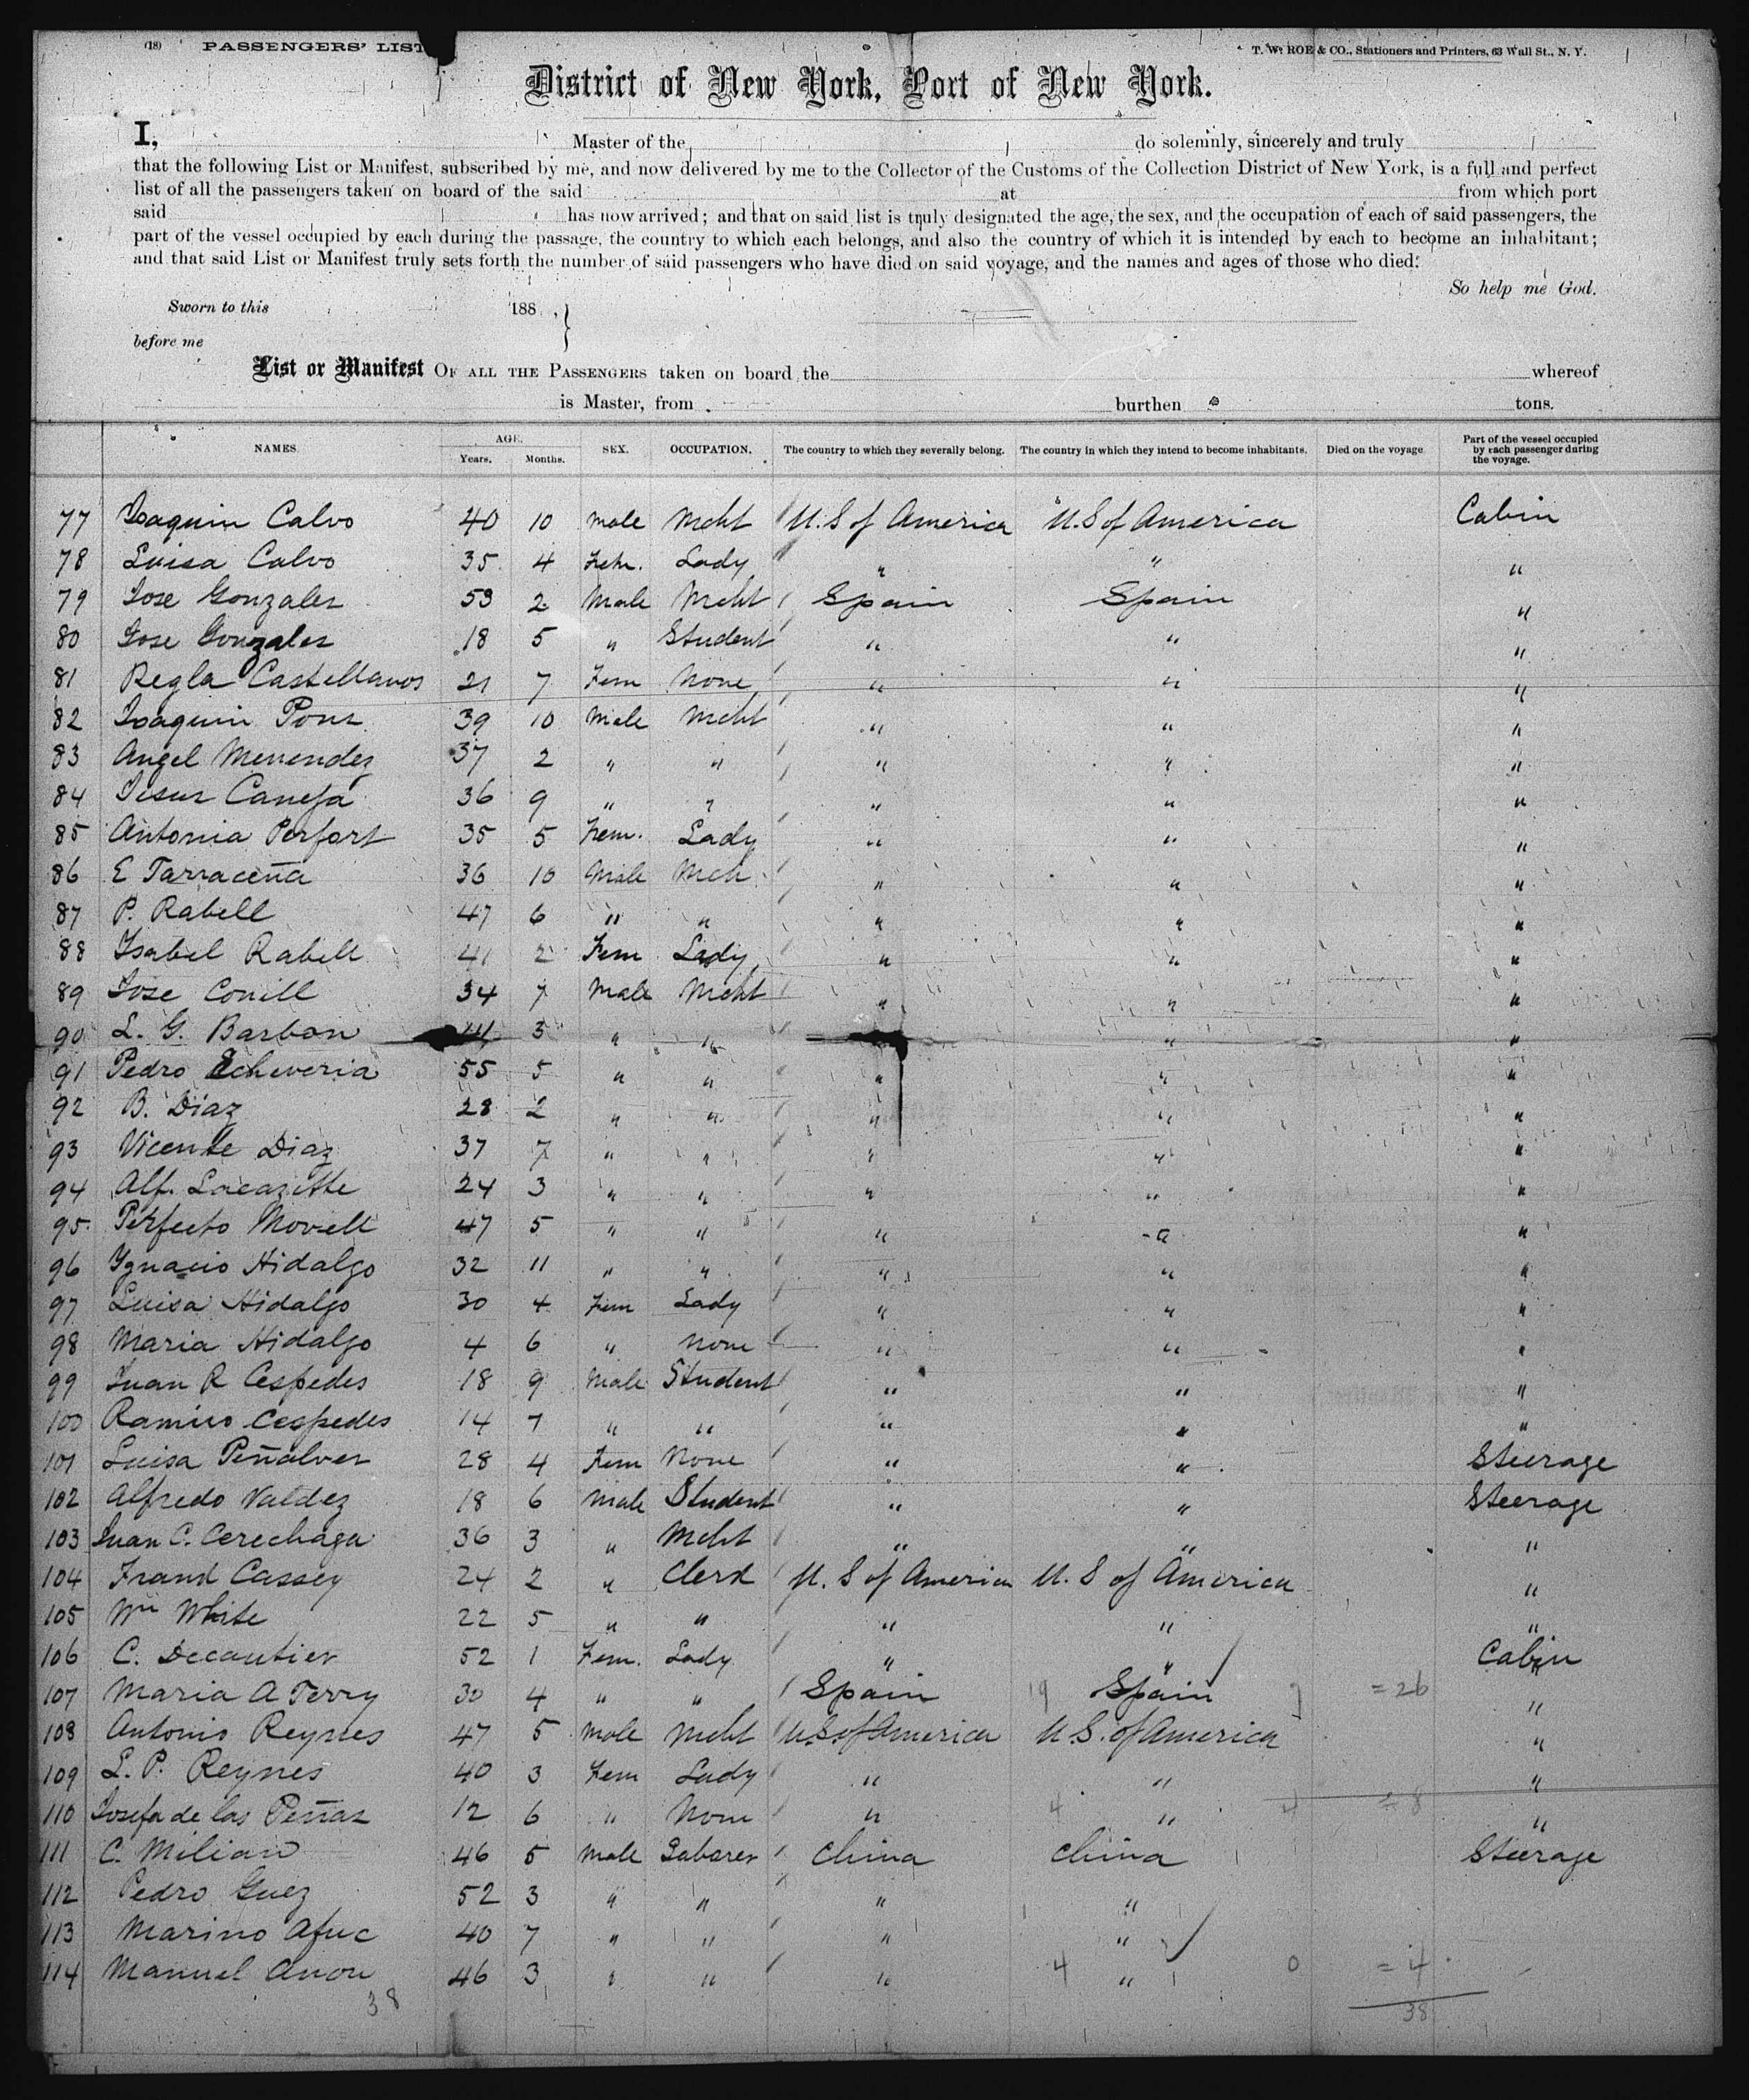 (18) PASSENGERS' LIST
T. W. ROE & CO., Stationers and Printers, 63 Wall St., N. Y.
District of New York, Port of New York.
I, Master of the do solemnly, sincerely and truly
that the following List or Manifest, subscribed by me, and now delivered by me to the Collector of the Customs of the Collection District of New York, is a full and perfect
list of all the passengers taken on board of the said at from which port
said has now arrived; and that on said list is truly designated the age, the sex, and the occupation of each of said passengers, the
part of the vessel occupied by each during the passage, the country to which each belongs, and also the country of which it is intended by each to become an inhabitant;
and that said List or Manifest truly sets forth the number of said passengers who have died on said voyage, and the names and ages of those who died.
So help me God.
Sworn to this 188 ,
before me
List or Manifest OF ALL THE PASSENGERS taken on board the whereof
is Master, from burthen tons.
NAMES AGE. Years. Months. SEX. OCCUPATION. The country to which they severally belong. The country in which they intend to become inhabitants. Died on the voyage Part of the vessel occupied by each passenger during the voyage.
77 Joaquin Calvo 40 10 male Mcht U.S of America U.S of America Cabin
78 Luisa Calvo 35 4 Fem. Lady " " "
79 Jose Gonzales 53 2 Male Mcht Spain Spain "
80 Jose Gonzales 18 5 " Student " " "
81 Regla Castellanos 21 7 Fem None " " "
82 Joaquin Pons 39 10 Male Mcht " " "
83 Angel Menendez 37 2 " " " " "
84 Jesus Caneja 36 9 " " " " "
85 Antonia Perfort 35 5 Fem. Lady " " "
86 E Tarraceña 36 10 Male Mch " " "
87 P. Rabell 47 6 " " " " "
88 Isabel Rabell 41 2 Fem Lady " " "
89 Jose Conill 34 7 Male Mcht " " "
90 L. G. Barbon 3 " " " "
91 Pedro Echeveria 55 5 " " " " "
92 B. Diaz 28 2 " " " " "
93 Vicente Diaz 37 7 " " " " "
94 Alf. Lacazette 24 3 " " " " "
95 Perfecto Movell 47 5 " " " " "
96 Ygnacio Hidalgo 32 11 " " " " "
97 Luisa Hidalgo 30 4 Fem Lady " " "
98 Maria Hidalgo 4 6 " None " " "
99 Juan R Cespedes 18 9 Male Student " " "
100 Ramiro Cespedes 14 7 " " " " "
101 Luisa Peñalver 28 4 Fem None " " Steerage
102 Alfredo Valdez 18 6 Male Student " " Steerage
103 Juan C. Cerechaga 36 3 " Mcht " " "
104 Frank Cassey 24 2 " Clerk U. S of America U. S of America "
105 Wm White 22 5 " " " " "
106 C. Decautier 52 1 Fem. Lady " " Cabin
107 Maria A Terry 30 4 " " Spain 19 Spain 7 = 26 "
108 Antonio Reynes 47 5 Male Mcht U.S. of America U.S. of America "
109 L. P. Reynes 40 3 Fem Lady " " "
110 Josefa de las Peñas 12 6 " None " 4 " 4 = 8 "
111 C. Milian 46 5 Male Laborer China China Steerage
112 Pedro Guez 52 3 " " " "
113 Marino Afuc 40 7 " " " "
114 Manuel Anon 46 3 " " " 4 " 0 = 4
38 38